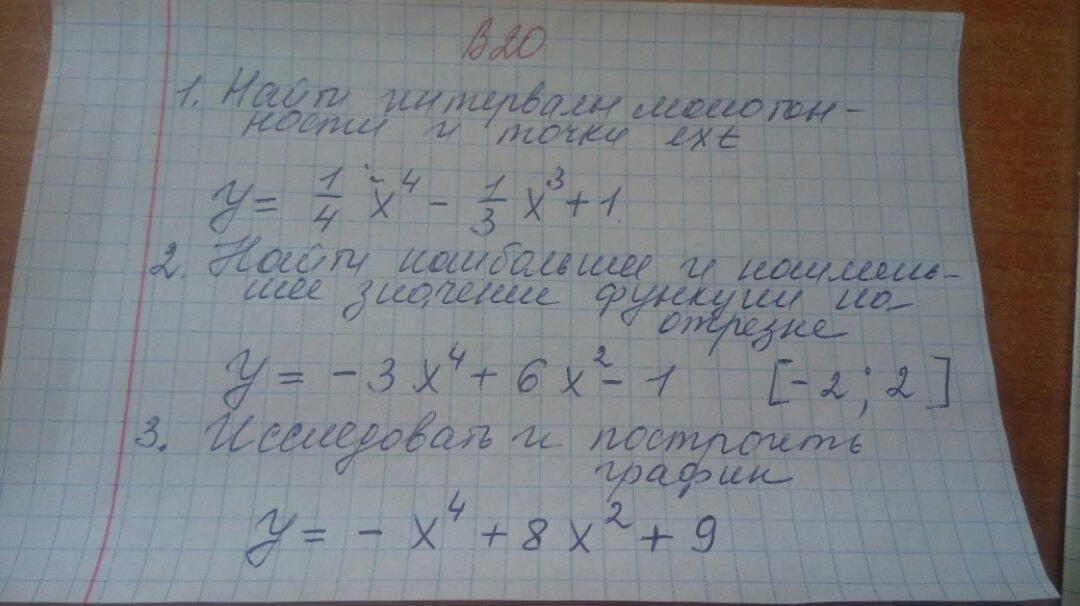 В20
1. Найти интервалы монотон-
ности и точки ext
y = 1/4 x^4 - 1/3 x^3 + 1
2. Найти наибольшее и наимень-
шее значение функции на
отрезке
y = -3x^4 + 6x^2 - 1 [-2; 2]
3. Исследовать и построить
график
y = -x^4 + 8x^2 + 9